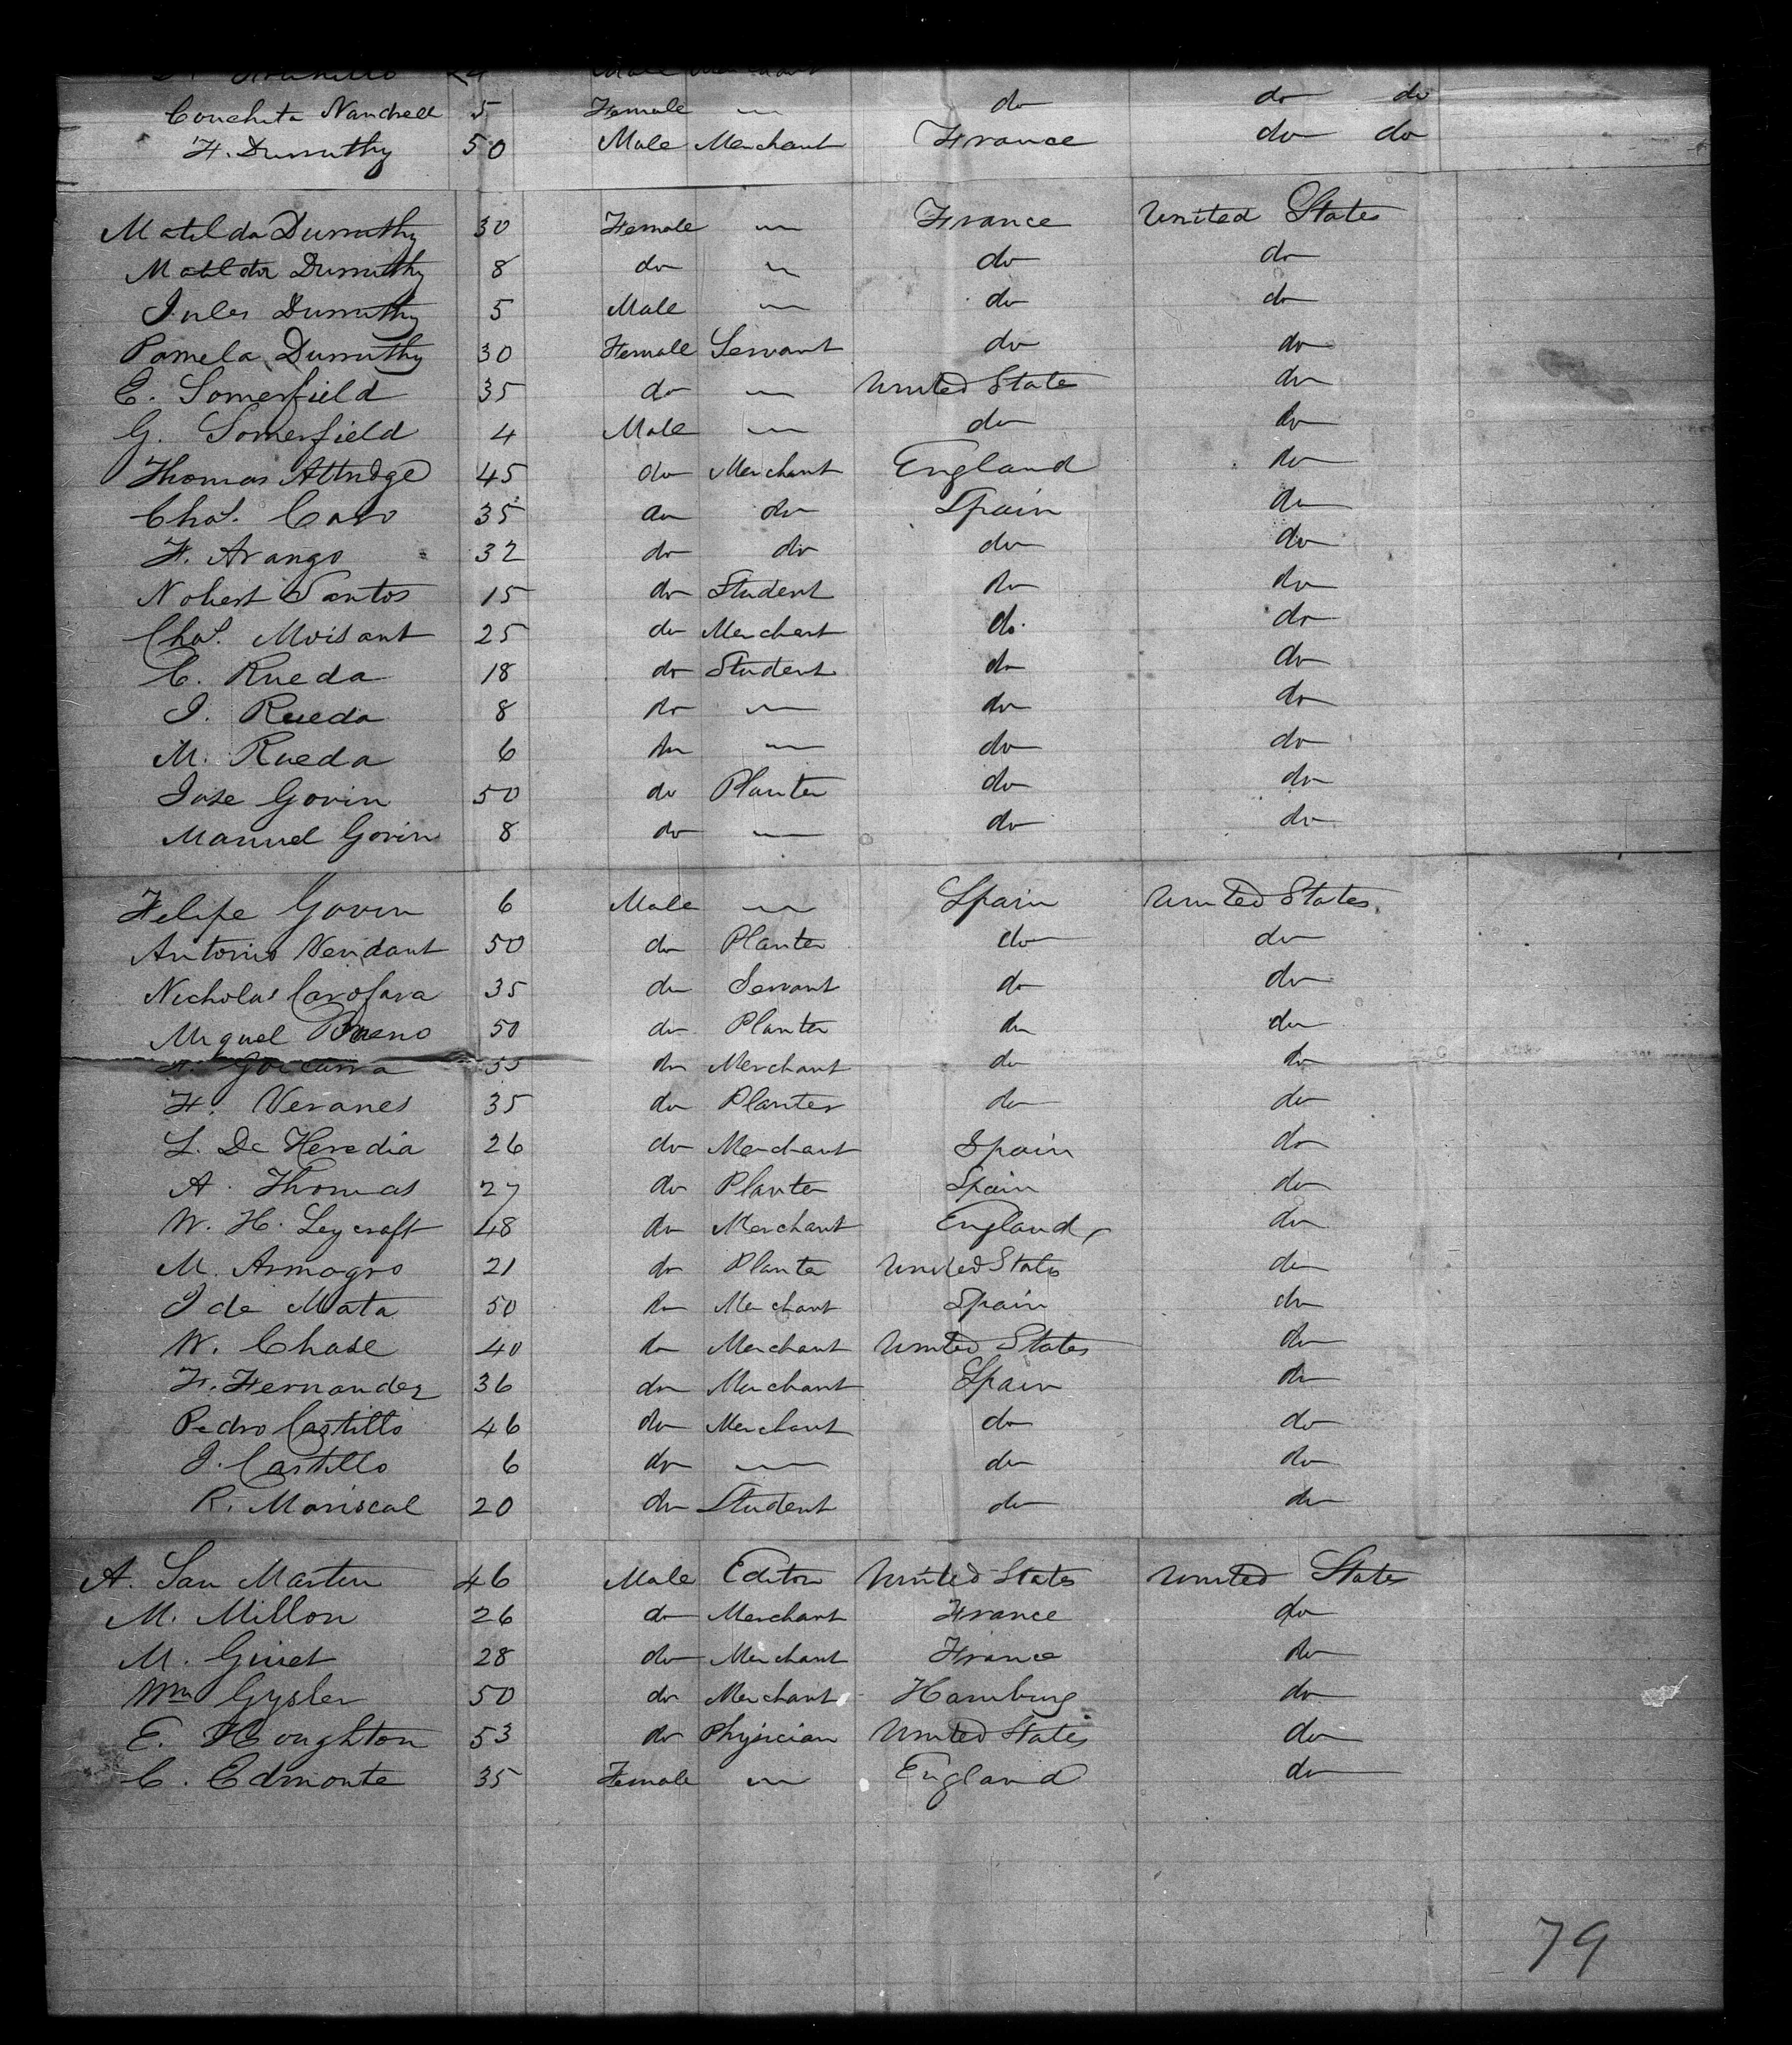 Conchita Nandrell 5 Female — do do do
F. Durruthy 50 Male Merchant France do do
Matilda Durruthy 30 Female — France United States
Matilda Durruthy 8 do — do do
Jules Durruthy 5 Male — do do
Pamela Durruthy 30 Female Servant do do
E. Somerfield 35 do — United State do
G. Somerfield 4 Male — do do
Thomas Attridge 45 do Merchant England do
Chas. Caro 35 do do Spain do
F. Arango 32 do do do do
Nobert Santos 15 do Student do do
Chas. Moisant 25 do Merchant do do
C. Rueda 18 do Student do do
J. Rueda 8 do — do do
M. Rueda 6 do — do do
Jose Govin 50 do Planter do do
Manuel Govin 8 do — do do
Felipe Govin 6 Male — Spain United States
Antonio Verdant 50 do Planter do do
Nicholas 35 do Servant do do
Miguel Bueno 50 do Planter do do
do Merchant do do
F. Veranes 35 do Planter do do
L. De Heredia 26 do Merchant Spain do
A. Thomas 27 do Planter Spain do
W. H. Leycraft 48 do Merchant England do
M. Armagro 21 do Planter United States do
J de Mata 50 do Merchant Spain do
W. Chase 40 do Merchant United States do
F. Fernandez 36 do Merchant Spain do
Pedro Castillo 46 do Merchant do do
J. Castillo 6 do — do do
R. Mariscal 20 do Student do do
A. San Martin 46 Male Editor United States United States
M. Millon 26 do Merchant France do
M. Ginet 28 do Merchant France do
Wm Gysler 50 do Merchant Hamburg do
E. Houghton 53 do Physician United States do
C. Edmonte 35 Female — England do
79